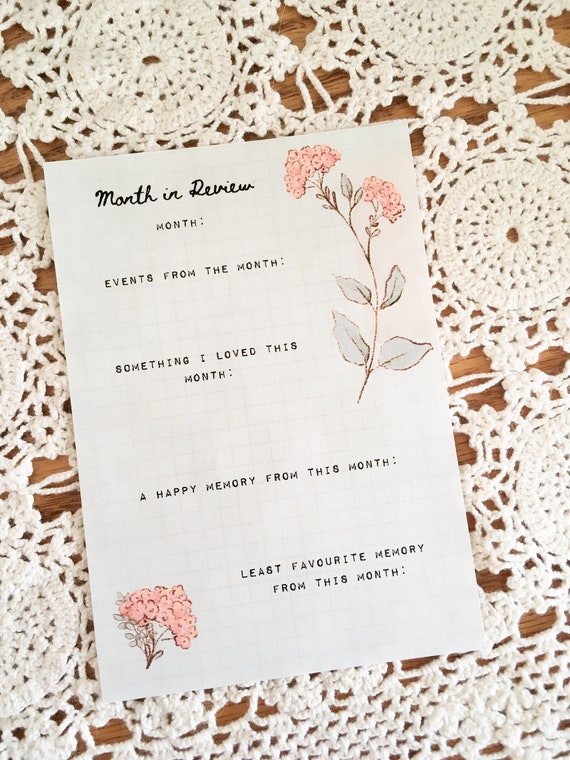 Month in Review
MONTH:
EVENTS FROM THE MONTH:
SOMETHING I LOVED THIS
MONTH:
A HAPPY MEMORY FROM THIS MONTH:
LEAST FAVOURITE MEMORY
FROM THIS MONTH: